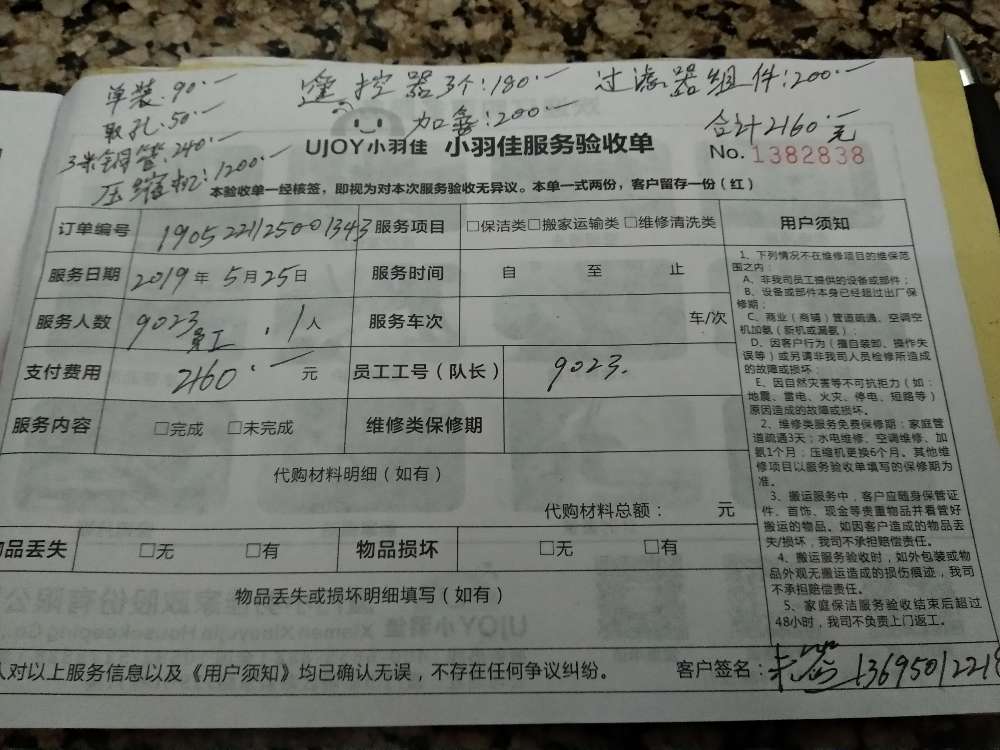 单装:90.一 遥控器3个:180.一 过滤器组件:200.一
取孔:50.一 加氟:200.一 合计2160.元
3米铜管:240.一
压缩机:1200.一
UJOY小羽佳 小羽佳服务验收单 No. 1382838
本验收单一经核签，即视为对本次服务验收无异议。本单一式两份，客户留存一份（红）
订单编号 1905221125001343 服务项目 □保洁类□搬家运输类□维修清洗类
服务日期 2019年5月25日 服务时间 自 至 止
服务人数 9023员工，1人 服务车次 车/次
支付费用 2160.一元 员工工号（队长） 9023.
服务内容 □完成 □未完成 维修类保修期
代购材料明细（如有）
代购材料总额： 元
物品丢失 □无 □有 物品损坏 □无 □有
物品丢失或损坏明细填写（如有）
用户须知
1、下列情况不在维修项目的维保范
围之内：
A、非我司员工提供的设备或部件；
B、设备或部件本身已经超过出厂保
修期；
C、商业（商铺）管道疏通、空调空
机加氨（新机或漏氨）；
D、因客户行为（擅自装卸、操作失
误等）或另请非我司人员检修所造成
的故障或损坏
E、因自然灾害等不可抗拒力（如：
地震、雷电、火灾、停电、短路等）
原因造成的故障或损坏。
2、维修类服务免费保修期：家庭管
道疏通3天；水电维修、空调维修、加
氨1个月；压缩机更换6个月。其他维
修项目以服务验收单填写的保修期为
准。
3、搬运服务中，客户应随身保管证
件、首饰、现金等贵重物品并看管好
搬运的物品。如因客户造成的物品丢
失/损坏，我司不承担赔偿责任。
4、搬运服务验收时，如外包装或物
品外观无搬运造成的损伤痕迹，我司
不承担赔偿责任。
5、家庭保洁服务验收结束后超过
48小时，我司不负责上门返工。
人对以上服务信息以及《用户须知》均已确认无误，不存在任何争议纠纷。 客户签名： 1369501221